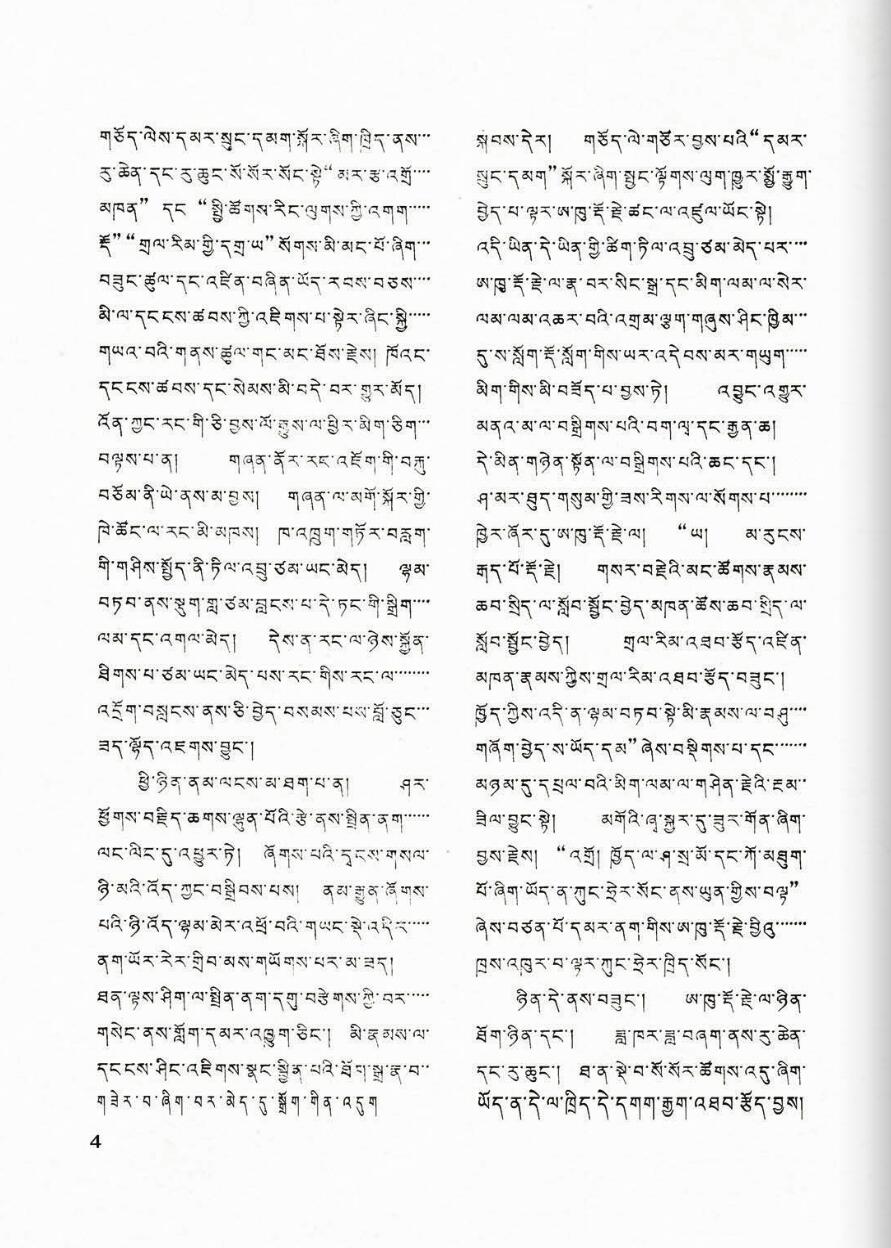 གཅོད་ལེས་དམར་སྲུང་དམག་སྐོར་ཞིག་ཁྲིད་ནས་་་
རུ་ཆེན་དང་རུ་ཆུང་སོ་སོར་སོང་སྟེ“མར་རྩ་འགྲོ་་་་
མཁན” དང “སྤྱི་ཚོགས་རིང་ལུགས་ཀྱི་འགག་་་་་
རྡོ” “གྲལ་རིམ་གྱི་དགྲ་ཡ” སོགས་མི་མང་པོ་ཞིག་་་
བཟུང་ཚུལ་དང་འཛིན་བཞིན་ཡོད་རབས་བཅས་་་་
མི་ལ་དངངས་ཚབས་ཀྱི་འཇིགས་པ་སྟེར་ཞིང་སྐྱི་་་་་
གཡའ་བའི་གནས་ཚུལ་གང་མང་ཐོས་རྗེས། ཁོ་འང་
དངངས་ཚབས་དང་སེམས་མི་བདེ་བར་གྱུར་མོད།
འོན་ཀྱང་རང་གི་ཅི་བྱས་ལོ་རྒྱུས་ལ་ཕྱིར་མིག་ཅིག་་་
བལྟས་པ་ན། གཞན་ནོར་རང་འཇོག་གི་བརྐུ་
བཅོམ་ནི་ཡེ་ནས་མ་བྱས། གཞན་ལ་མགོ་སྐོར་གྱི་
ཁེ་ཚོང་ལ་རང་མི་མཁས། ཁ་འཁྲུག་གཏོར་བརླག་
གི་གཤིས་སྤྱོད་ནི་ཏིལ་འབྲུ་ཙམ་ཡང་མེད། ལྷམ་
བཏབ་ནས་ལྟུག་གླ་ཙམ་བླངས་པ་དེ་ཏང་གི་སྒྲིག་་་་
ལམ་དང་འགལ་མེད། དེས་ན་རང་ལ་ཉེས་སྐྱོན་
ཐིགས་པ་ཙམ་ཡང་མེད་པས་རང་གིས་རང་ལ་་་་་་་
འདྲོག་བསླངས་ནས་ཅི་བྱེད་བསམས་པས་བློ་ཅུང་་་
ཟད་ལྷོད་འཇགས་བྱུང་།
ཕྱི་ཉིན་ནམ་ལངས་མ་ཐག་པ་ན། ཤར་
ཕྱོགས་བརྗིད་ཆགས་ལྷུན་པོའི་རྩེ་ནས་སྤྲིན་ནག་་་་་
ལང་ལིང་དུ་འཕྱུར་ཏེ། ཞོགས་པའི་དྭངས་གསལ་
ཉི་མའི་འོད་ཀྱང་བསྒྲིབས་པས། ནམ་རྒྱུན་ཞོགས་
པའི་ཉི་འོད་ལྷམ་མེར་འཕྲོ་བའི་གཡང་སྡེ་འདིར་་་་་
ནག་ཡོར་རེར་གྲིབ་མས་གཡོགས་པར་མ་ཟད།
ཐན་ལྟས་ཤིག་ལ་སྤྲིན་ནག་དགུ་བརྩེགས་ཀྱི་བར་་་་
གསེང་ནས་གློག་དམར་འཁྱུག་ཅིང་། མི་རྣམས་ལ་
དངངས་ཤིང་འཇིགས་སྣང་སྐྱེན་པའི་ཐོག་སྒྲ་རྣ་བ་་
གཟེར་བ་ཞིག་བར་མེད་དུ་སྒྲོག་གིན་འདུག
སྐབས་དེར། གཙོད་ལེ་གཙོར་བྱས་པའི“དམར་
སྲུང་དམག”སྐོར་ཞིག་སྤྱང་ལྟོགས་ལུག་ཁྱུར་སྤྱོ་རྒྱུག་
བྱེད་པ་ལྟར་ཨ་ཁུ་རྡོ་རྗེ་ཚང་ལ་འཛུལ་ཡོང་སྟེ།
འདི་ཡིན་དེ་ཡིན་གྱི་ཚིག་ཏིལ་འབྲུ་ཙམ་མེད་པར་་་་
ཨ་ཁུ་རྡོ་རྗེ་ལ་རྣ་བར་སེང་སྒྲ་དང་མིག་ལམ་ལ་སེར་
ལམ་ལམ་འཆར་བའི་འགྲམ་ལྕག་གཞུས་ཤིང་ཁྱིམ་་་
དུ་ས་སློག་རྡོ་སློག་གིས་ཡར་འདེབས་མར་གཡུག་་་་་
མིག་གིས་མི་བཟོད་པ་བྱས་ཏེ། འབྱུང་འགྱུར་
མནའ་མ་ལ་བསྒྲིགས་པའི་བག་ལྭ་དང་རྒྱན་ཆ།
དེ་མིན་གཉེན་སྟོན་ལ་བསྒྲིགས་པའི་ཆང་དང་།
ཤ་མར་ཐུད་གསུམ་གྱི་ཟས་རིགས་ལ་སོགས་པ་་་་་་་་
ཁྱེར་ཞོར་དུ་ཨ་ཁུ་རྡོ་རྗེ་ལ། “ཡ། མ་རུངས་
རྒད་པོ་རྡོ་རྗེ། གསར་བརྗེའི་མང་ཚོགས་རྣམས་
ཆབ་སྲིད་ལ་སློབ་སྦྱོང་བྱེད་མཁན་ཚོས་ཆབ་སྲིད་ལ་
སློབ་སྦྱོང་བྱེད། གྲལ་རིམ་འཐབ་རྩོད་འཛིན་
མཁན་རྣམས་ཀྱིས་གྲལ་རིམ་འཐབ་རྩོད་བཟུང་།
ཁྱོད་ཀྱིས་འདི་ན་ལྷམ་བཏབ་སྟེ་མི་རྣམས་ལ་བཤུ་་་་
གཞོག་བྱེད་ས་ཡོད་དམ” ཞེས་བསྡིགས་པ་དང་་་་་་
མཉམ་དུ་དཔྲལ་བའི་མིག་ལམ་ལ་གཤིན་རྗེའི་ངམ་་
ཟིལ་བྱུང་སྟེ། མགོའི་ཞྭ་སྐྱར་དུ་ཟུར་གོན་ཞིག་
བྱས་རྗེས། “འགྲོ། ཁྱོད་ལ་ཤ་སྲ་མོ་དང་ཀོ་མཐུག་
པོ་ཞིག་ཡོད་ན་ཀུང་ཧྲེར་སོང་ནས་ཡུན་གྱིས་བལྟ”
ཞེས་བཙན་པོ་དམར་ནག་གིས་ཨ་ཁུ་རྡོ་རྗེ་བྱིའུ་་་་་་་
ཁྲས་འཁུར་བ་ལྟར་ཀུང་ཧྲེར་ཁྲིད་སོང་།
ཉིན་དེ་ནས་བཟུང་། ཨ་ཁུ་རྡོ་རྗེ་ལ་ཉིན་
ཐོག་ཉིན་དང་། ཟླ་ཁར་ཟླ་བཞག་ནས་རུ་ཆེན་
དང་རུ་ཆུང་། ཐ་ན་སྡེ་བ་སོ་སོར་ཚོགས་འདུ་ཞིག་
ཡོད་ན་དེ་ལ་ཁྲིད་དེ་དགག་རྒྱག་འཐབ་རྩོད་བྱས།
4